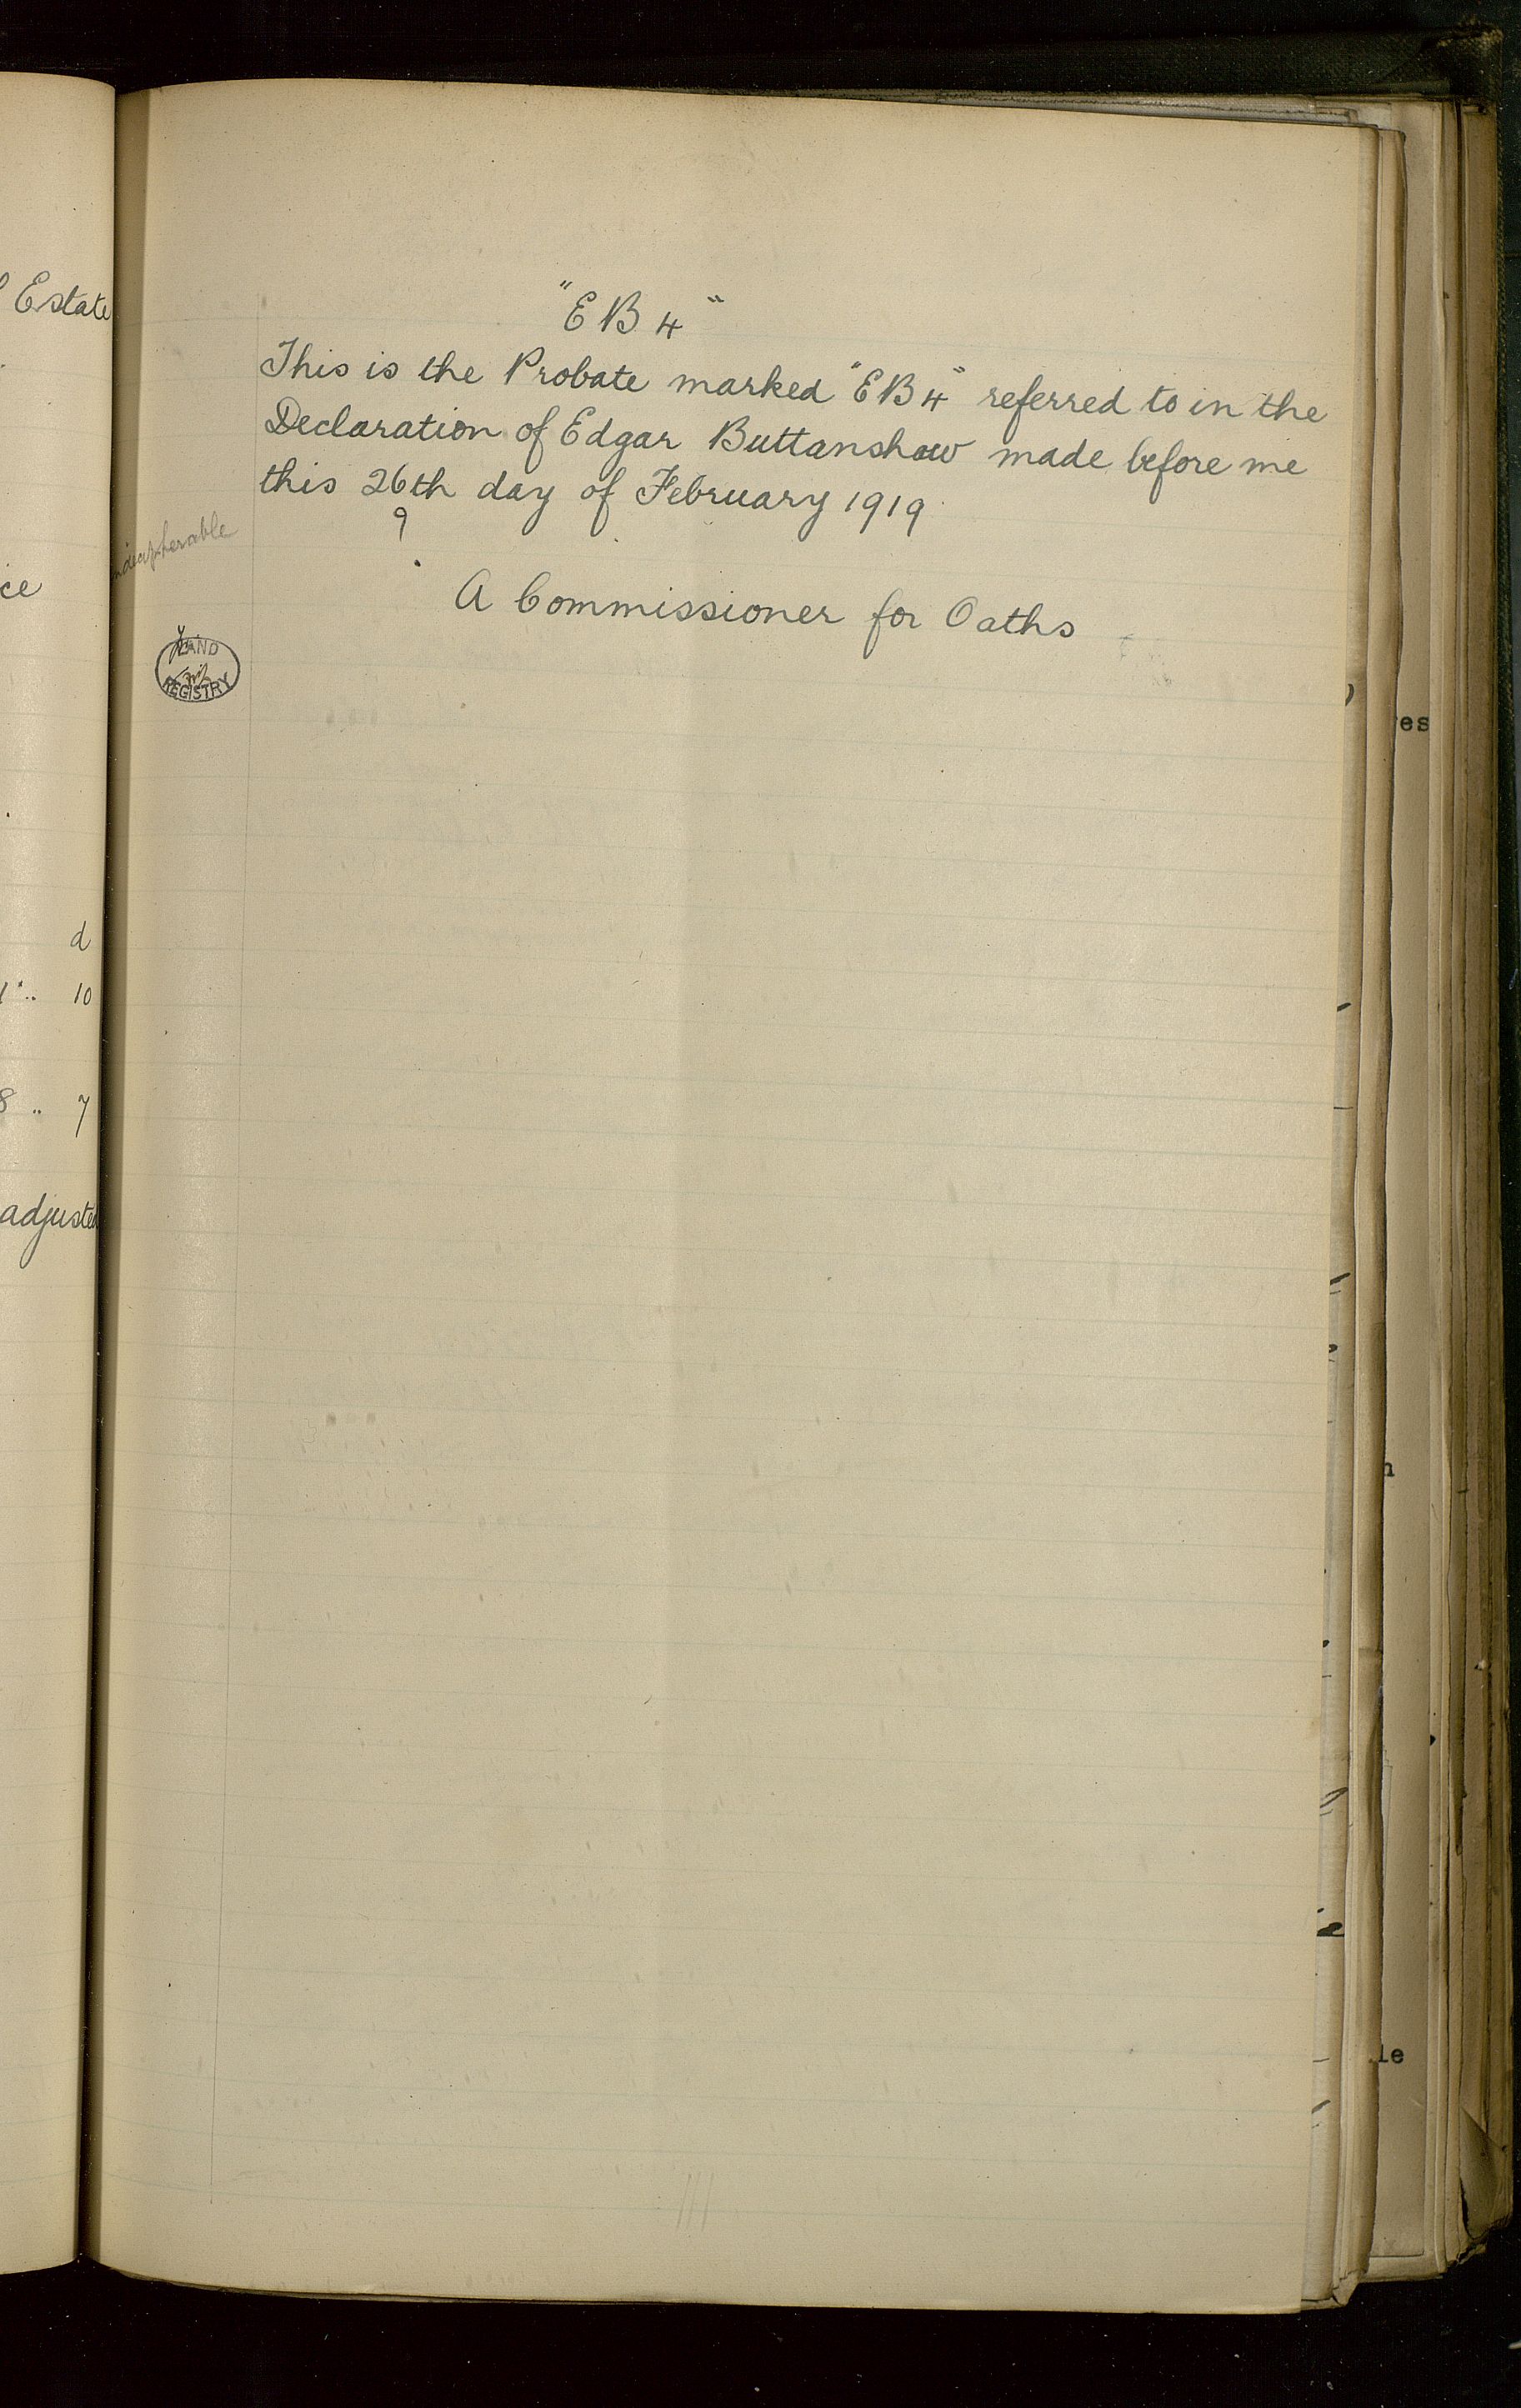 Estate
ce
d
10
8 " 7
adjusted
"EB4"
This is the Probate marked "EB4" referred to in the
Declaration of Edgar Buttanshaw made before me
this 26th day of February 1919
?
A Commissioner for Oaths
LAND
REGISTRY
es
n
le